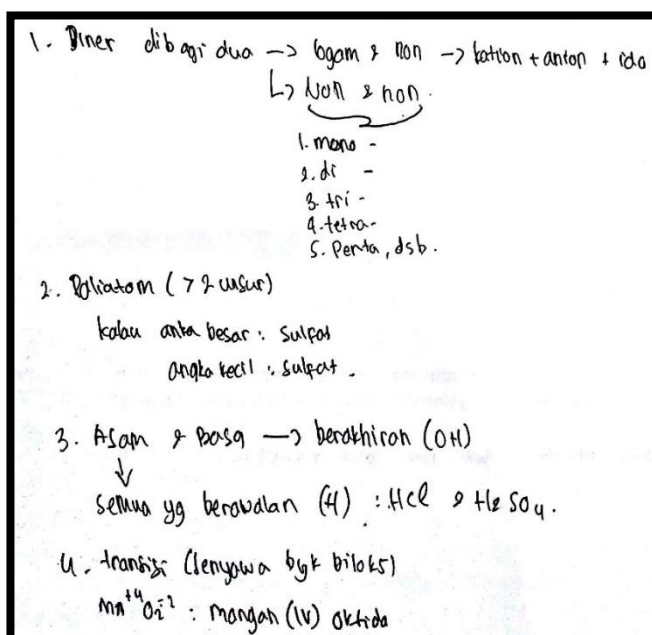 1. Biner dibagi dua -> logam & non -> kation + anion + ida
↳ Non & non.
1. mono -
2. di -
3. tri -
4. tetra-
5. Penta, dsb.
2. Poliatom (> 2 unsur)
kalau anka besar : sulfat
angka kecil : sulfat.
3. Asam & Basa -> berakhiran (OH)
↓
semua yg berawalan (H) : HCl & H2SO4.
4. transisi (senyawa byk biloks)
Mn+4O2-2 : mangan (IV) oksida